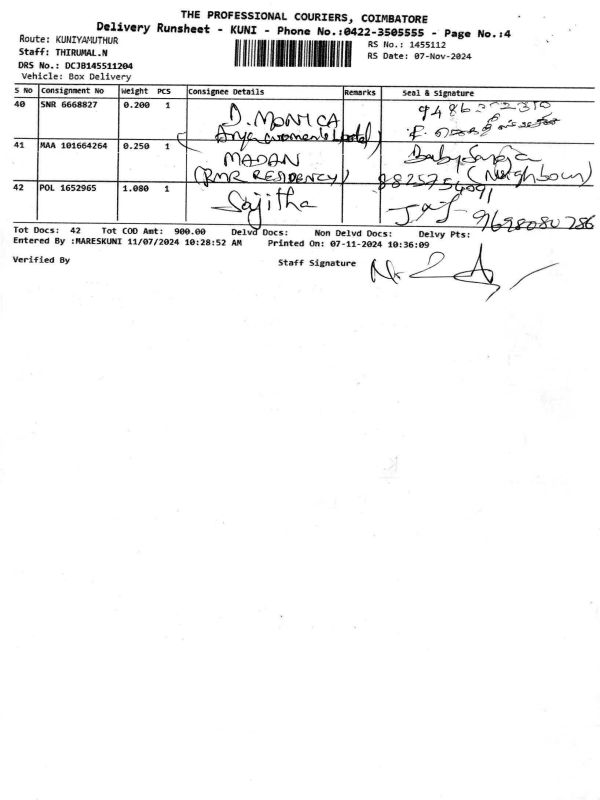 THE PROFESSIONAL COURIERS, COIMBATORE
Delivery Runsheet - KUNI - Phone No.:0422-3505555 - Page No.:4
Route: KUNIYAMUTHUR
RS No.: 1455112
Staff: THIRUMAL.N
RS Date: 07-Nov-2024
DRS No.: DCJB145511204
Vehicle: Box Delivery
S No Consignment No Weight PCS Consignee Details Remarks Seal & Signature
40 SNR 6668827 0.200 1 D. MONICA
41 MAA 101664264 0.250 1 MADAN
(RMR RESIDENCY) (Neighbour)
42 POL 1652965 1.080 1 Sajitha
9698080786
Tot Docs: 42 Tot COD Amt: 900.00 Delvd Docs: Non Delvd Docs: Delvy Pts:
Entered By :MARESKUNI 11/07/2024 10:28:52 AM Printed On: 07-11-2024 10:36:09
Verified By Staff Signature